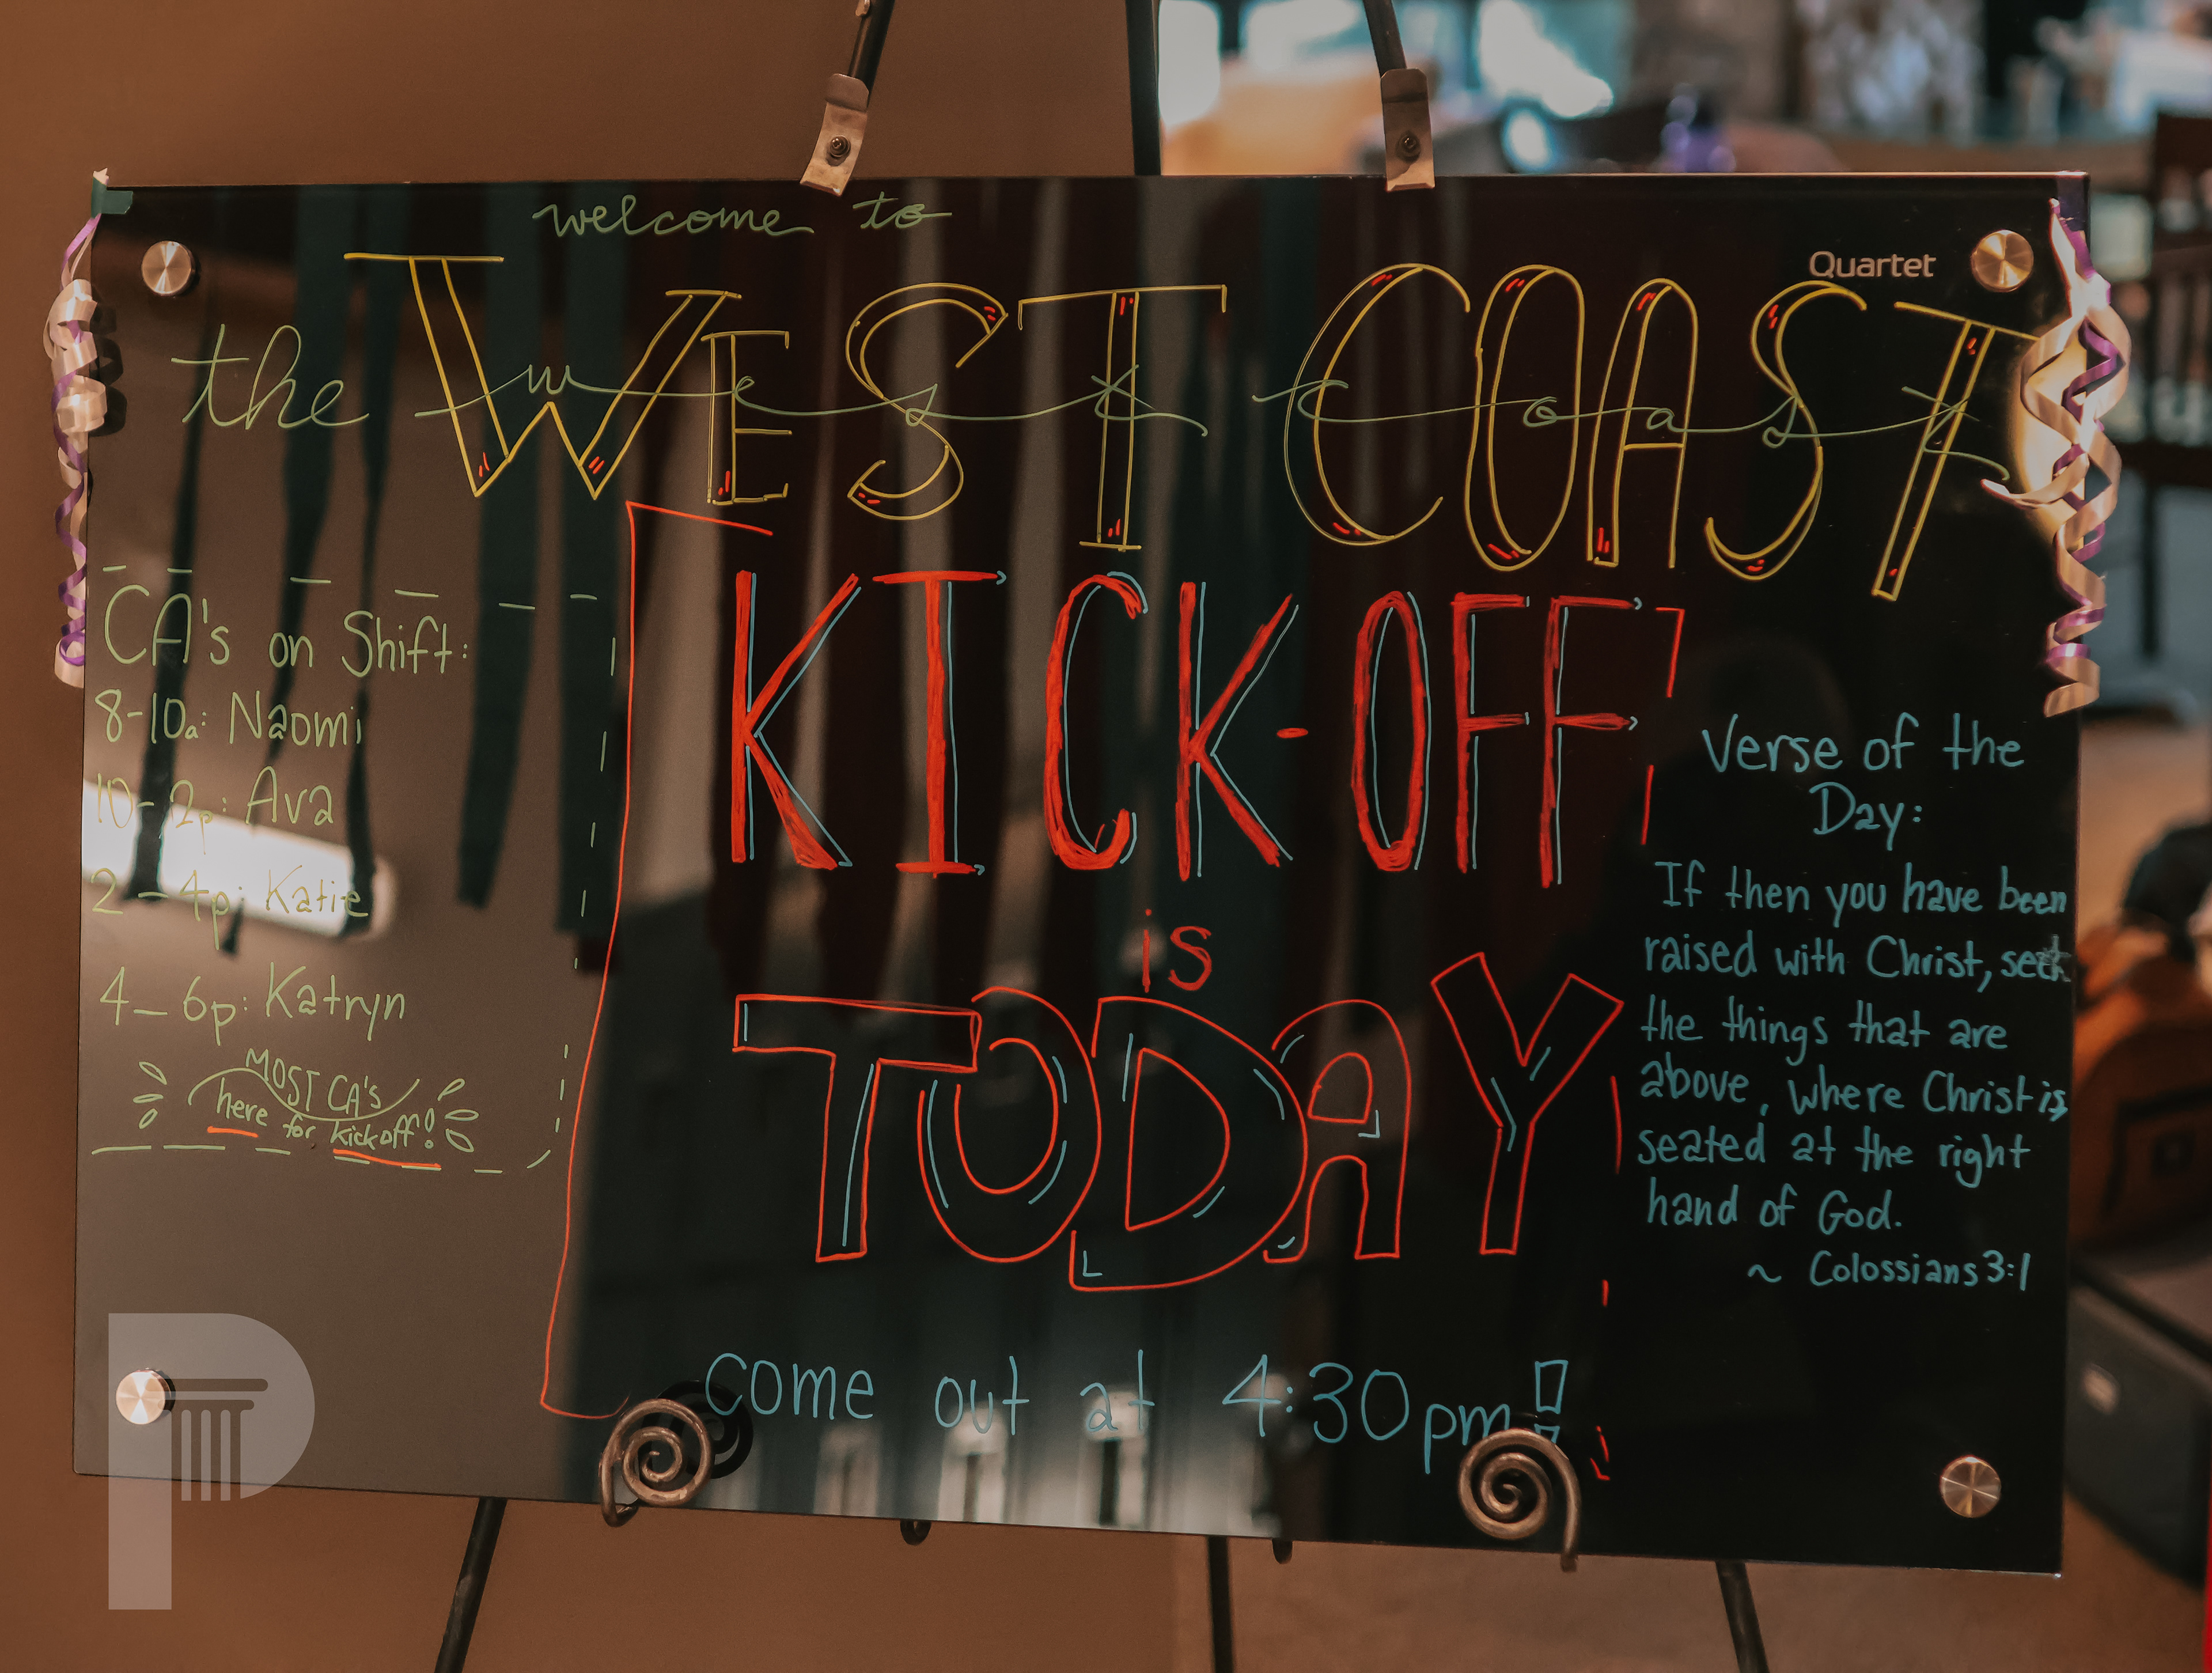 welcome to
Quartet
the WEST COAST
west coast
KICK-OFF
is
TODAY
come out at 4:30pm!
CA's on Shift:
8-10a: Naomi
10-2p: Ava
2-4p: Katie
4-6p: Katryn
MOST CA's
here for kickoff!
Verse of the
Day:
If then you have been
raised with Christ, seek
the things that are
above, where Christ is
seated at the right
hand of God.
~ Colossians 3:1
P